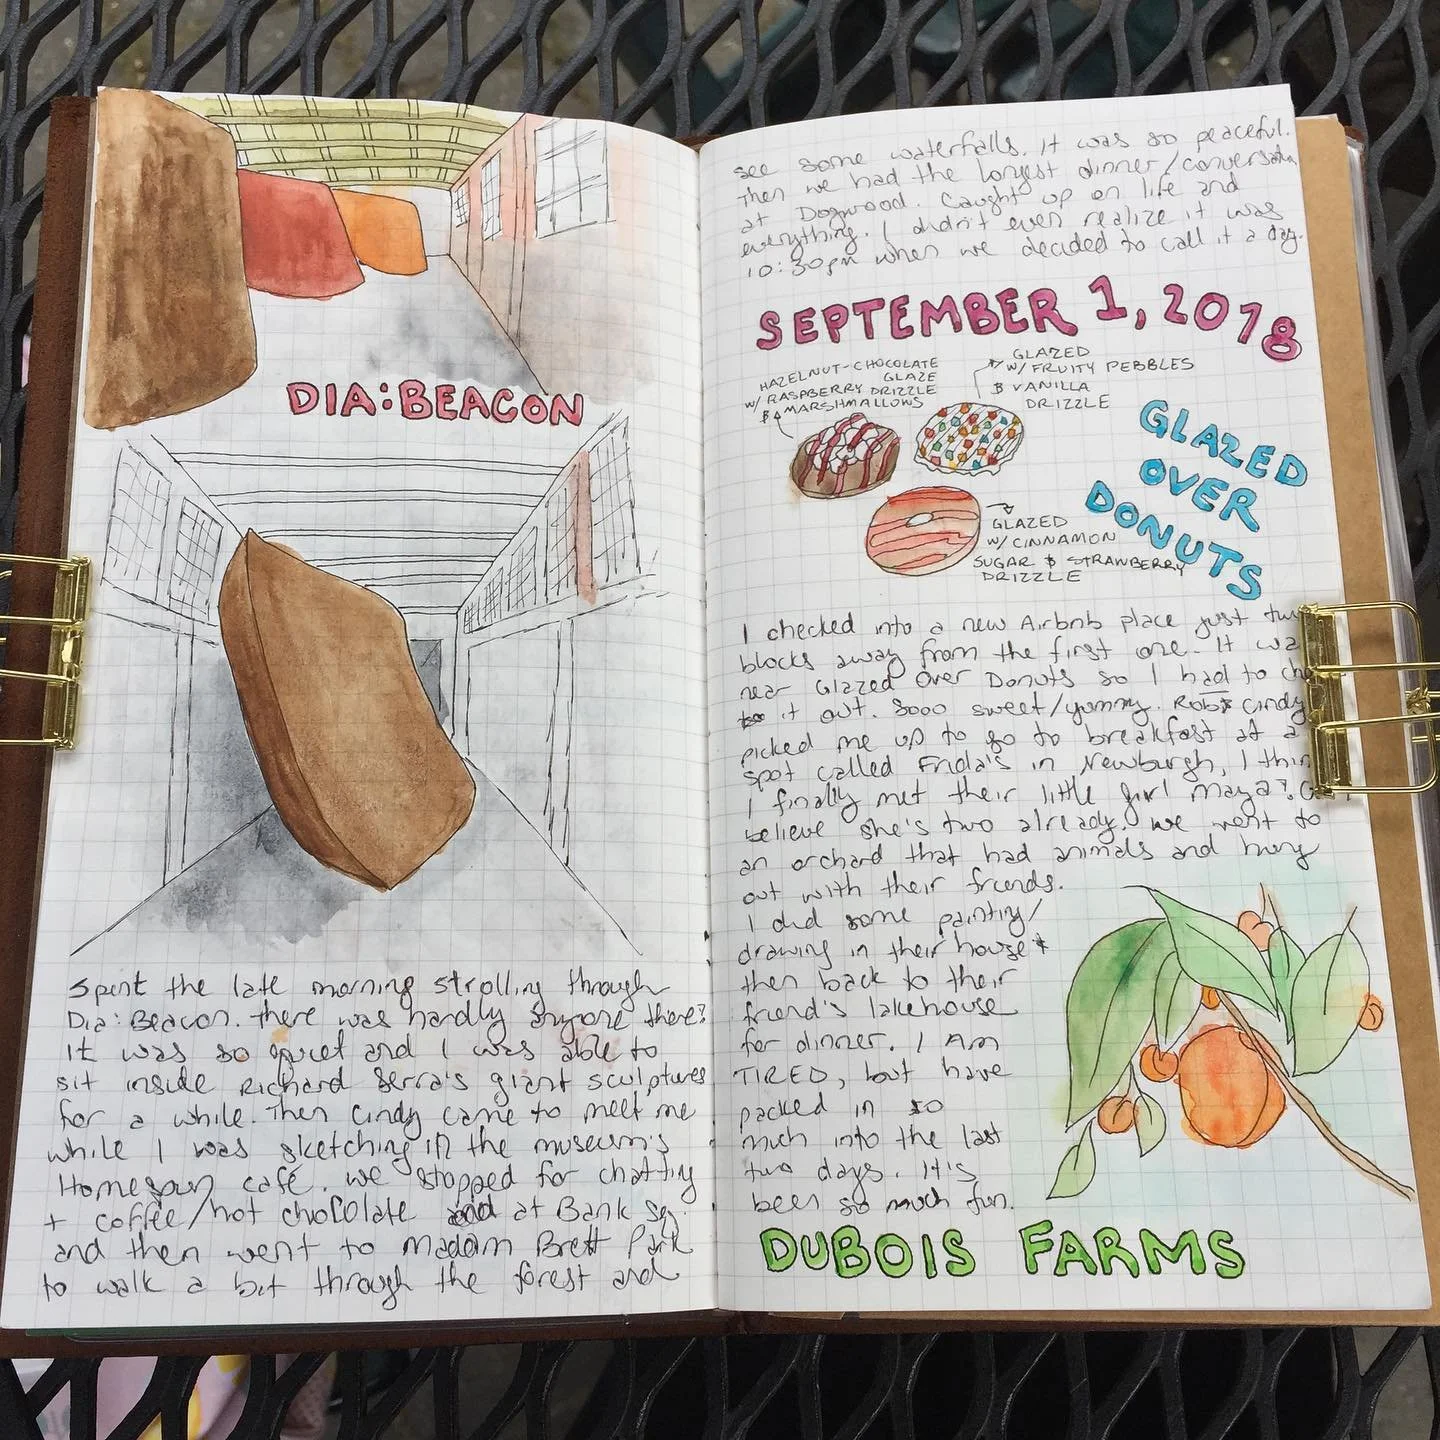 DIA:BEACON
Spent the late morning strolling through
Dia:Beacon. There was hardly anyone there?
It was so quiet and I was able to
sit inside Richard Serra's giant sculptures
for a while. Then Cindy came to meet me
while I was sketching in the museum's
Homespun café. We stopped for chatting
+ coffee/hot chocolate at Bank Sq.
and then went to Madam Brett Park
to walk a bit through the forest and
see some waterfalls. It was so peaceful.
Then we had the longest dinner/conversation
at Dogwood. Caught up on life and
everything. I didn't even realize it was
10:30pm when we decided to call it a day.
SEPTEMBER 1, 2018
HAZELNUT-CHOCOLATE
GLAZE
W/ RASPBERRY DRIZZLE
& MARSHMALLOWS
GLAZED
W/ FRUITY PEBBLES
& VANILLA
DRIZZLE
GLAZED
W/ CINNAMON
SUGAR & STRAWBERRY
DRIZZLE
GLAZED
OVER
DONUTS
I checked into a new Airbnb place just
blocks away from the first one. It
near Glazed Over Donuts so I had to
it out. Sooo sweet/yummy. Rob & Cindy
picked me up to go to breakfast at a
spot called Frida's in Newburgh, I
I finally met their little girl Maya!
believe she's two already. We went to
an orchard that had animals and hung
out with their friends.
I did some painting/
drawing in their house +
then back to their
friend's lakehouse
for dinner. I AM
TIRED, but have
packed in so
much into the last
two days. It's
been so much fun.
DUBOIS FARMS